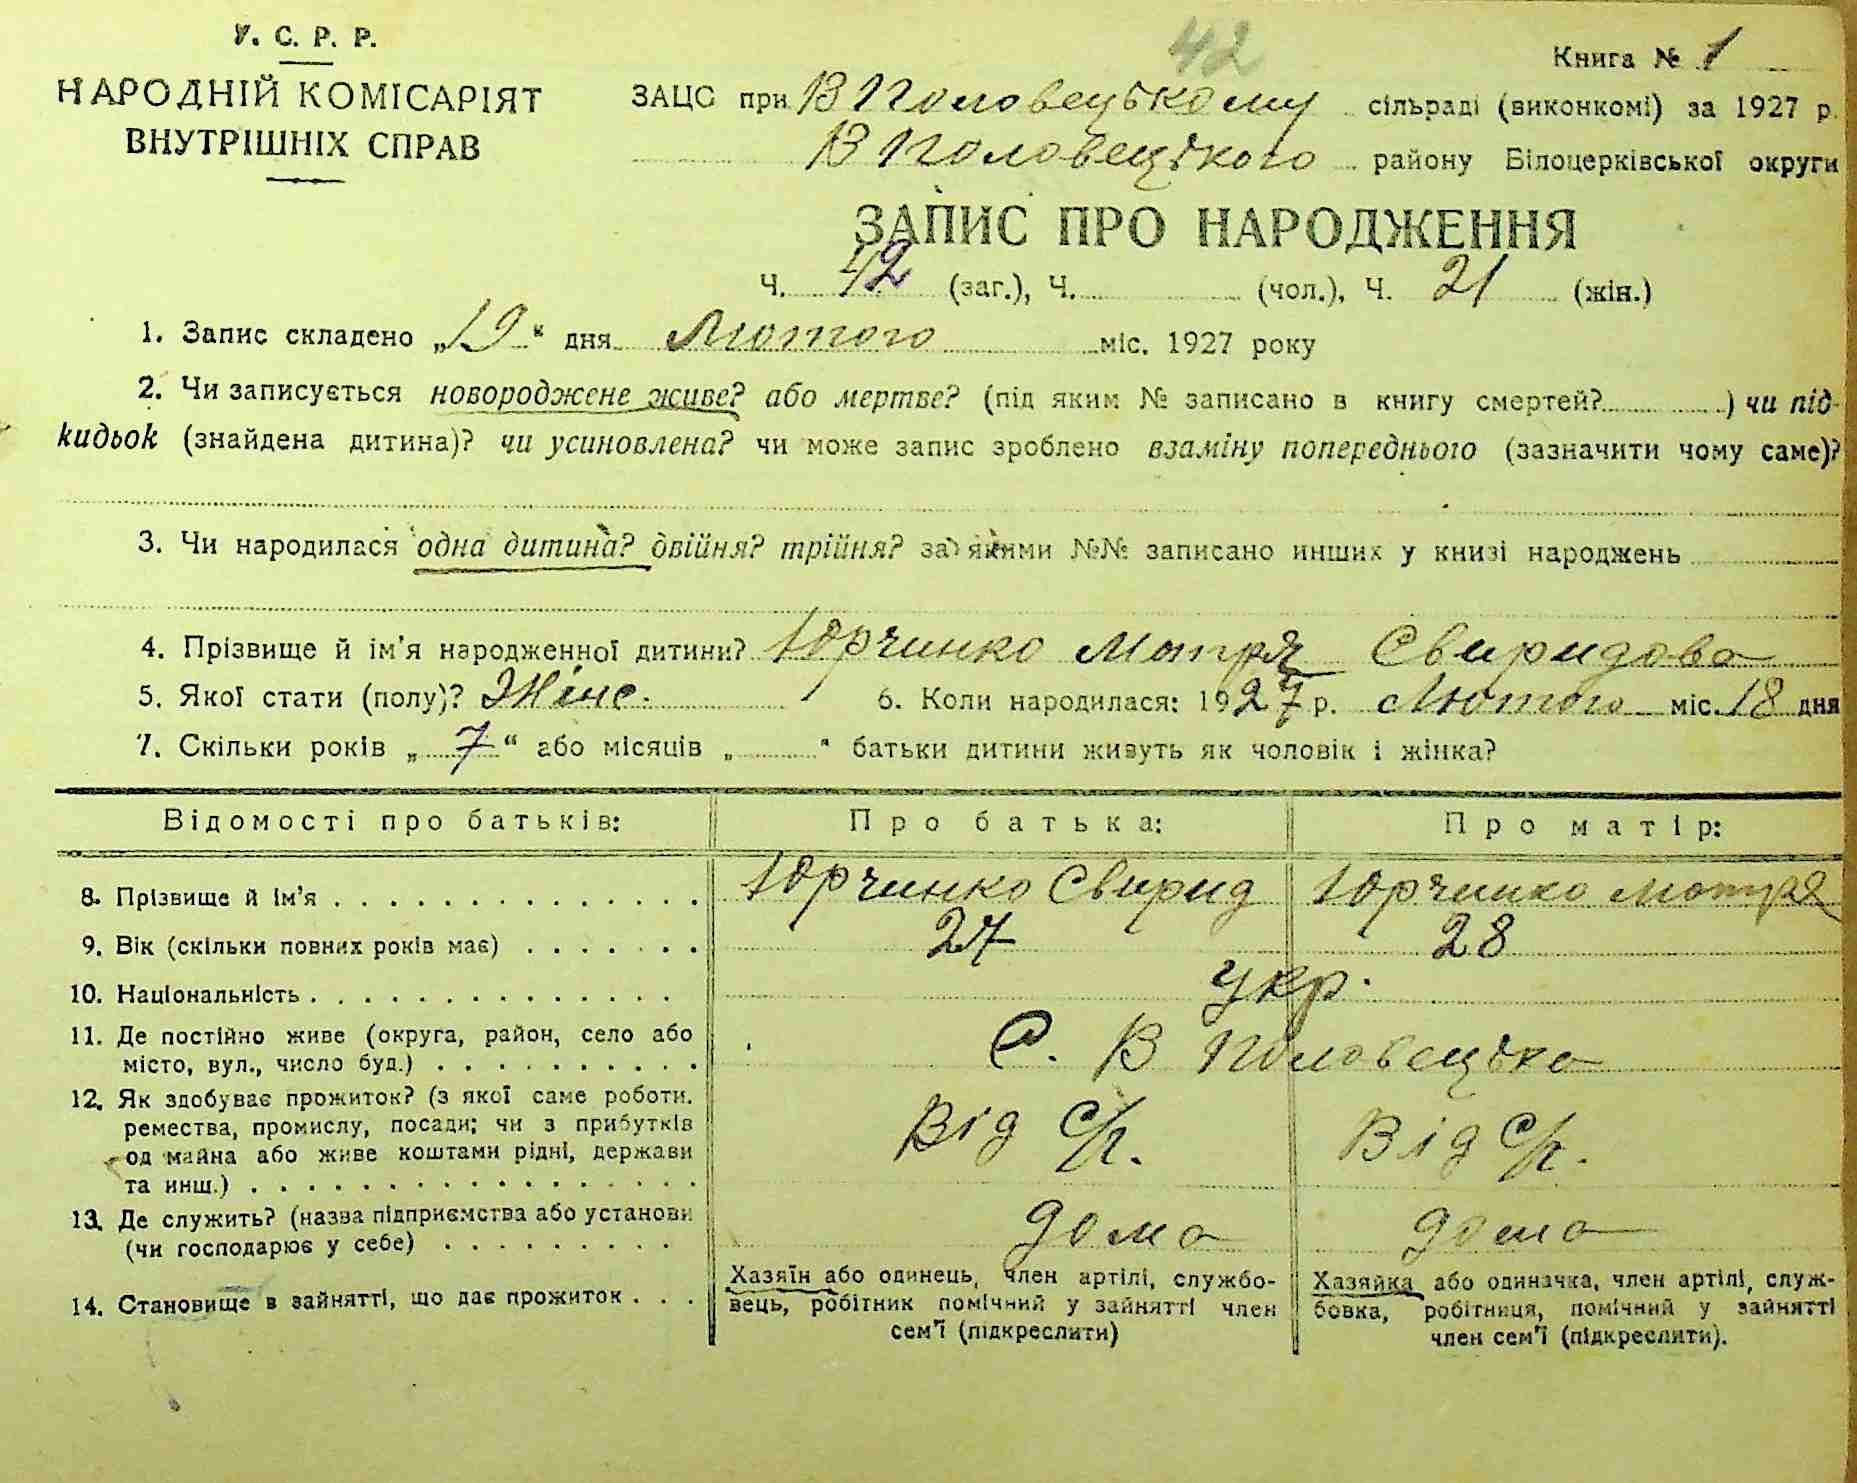 42
У. С. Р. Р.
Книга № 1
НАРОДНІЙ КОМІСАРІЯТ
ВНУТРІШНІХ СПРАВ
ЗАЦС при В Половецькому сільраді (виконкомі) за 1927 р.
В Половецького району Білоцерківської округи
ЗАПИС ПРО НАРОДЖЕННЯ
Ч. 42 (заг.), Ч. (чол.), Ч. 21 (жін.)
1. Запис складено „19“ дня Лютого міс. 1927 року
2. Чи записується новороджене живе? або мертве? (під яким № записано в книгу смертей? ) чи під-
кидьок (знайдена дитина)? чи усиновлена? чи може запис зроблено взаміну попереднього (зазначити чому саме)?
3. Чи народилася одна дитина? двійня? трійня? за якими №№ записано инших у книзі народжень
4. Прізвище й ім'я народженної дитини? Юрчинко Мотря Свиридова
5. Якої стати (полу)? Жіно. 6. Коли народилася: 1927 р. Лютого міс. 18 дня
7. Скільки років „ 7 “ або місяців „ “ батьки дитини живуть як чоловік і жінка?
Відомості про батьків: Про батька: Про матір:
8. Прізвище й ім'я Юрчинко Свирид Юрчинко Мотря
9. Вік (скільки повних років має) 27 28
10. Національність укр.
11. Де постійно живе (округа, район, село або
місто, вул., число буд.) С. В Половецька
12. Як здобуває прожиток? (з якої саме роботи,
ремества, промислу, посади; чи з прибутків
од майна або живе коштами рідні, держави
та инш.) Від с/г. Від с/г.
13. Де служить? (назва підприємства або установи
(чи господарює у себе) дома дома
14. Становище в зайнятті, що дає прожиток
Хазяїн або одинець, член артілі, службо-
вець, робітник помічний у зайнятті член
сем'ї (підкреслити)
Хазяйка або одиначка, член артілі, служ-
бовка, робітниця, помічний у зайнятті
член сем'ї (підкреслити).